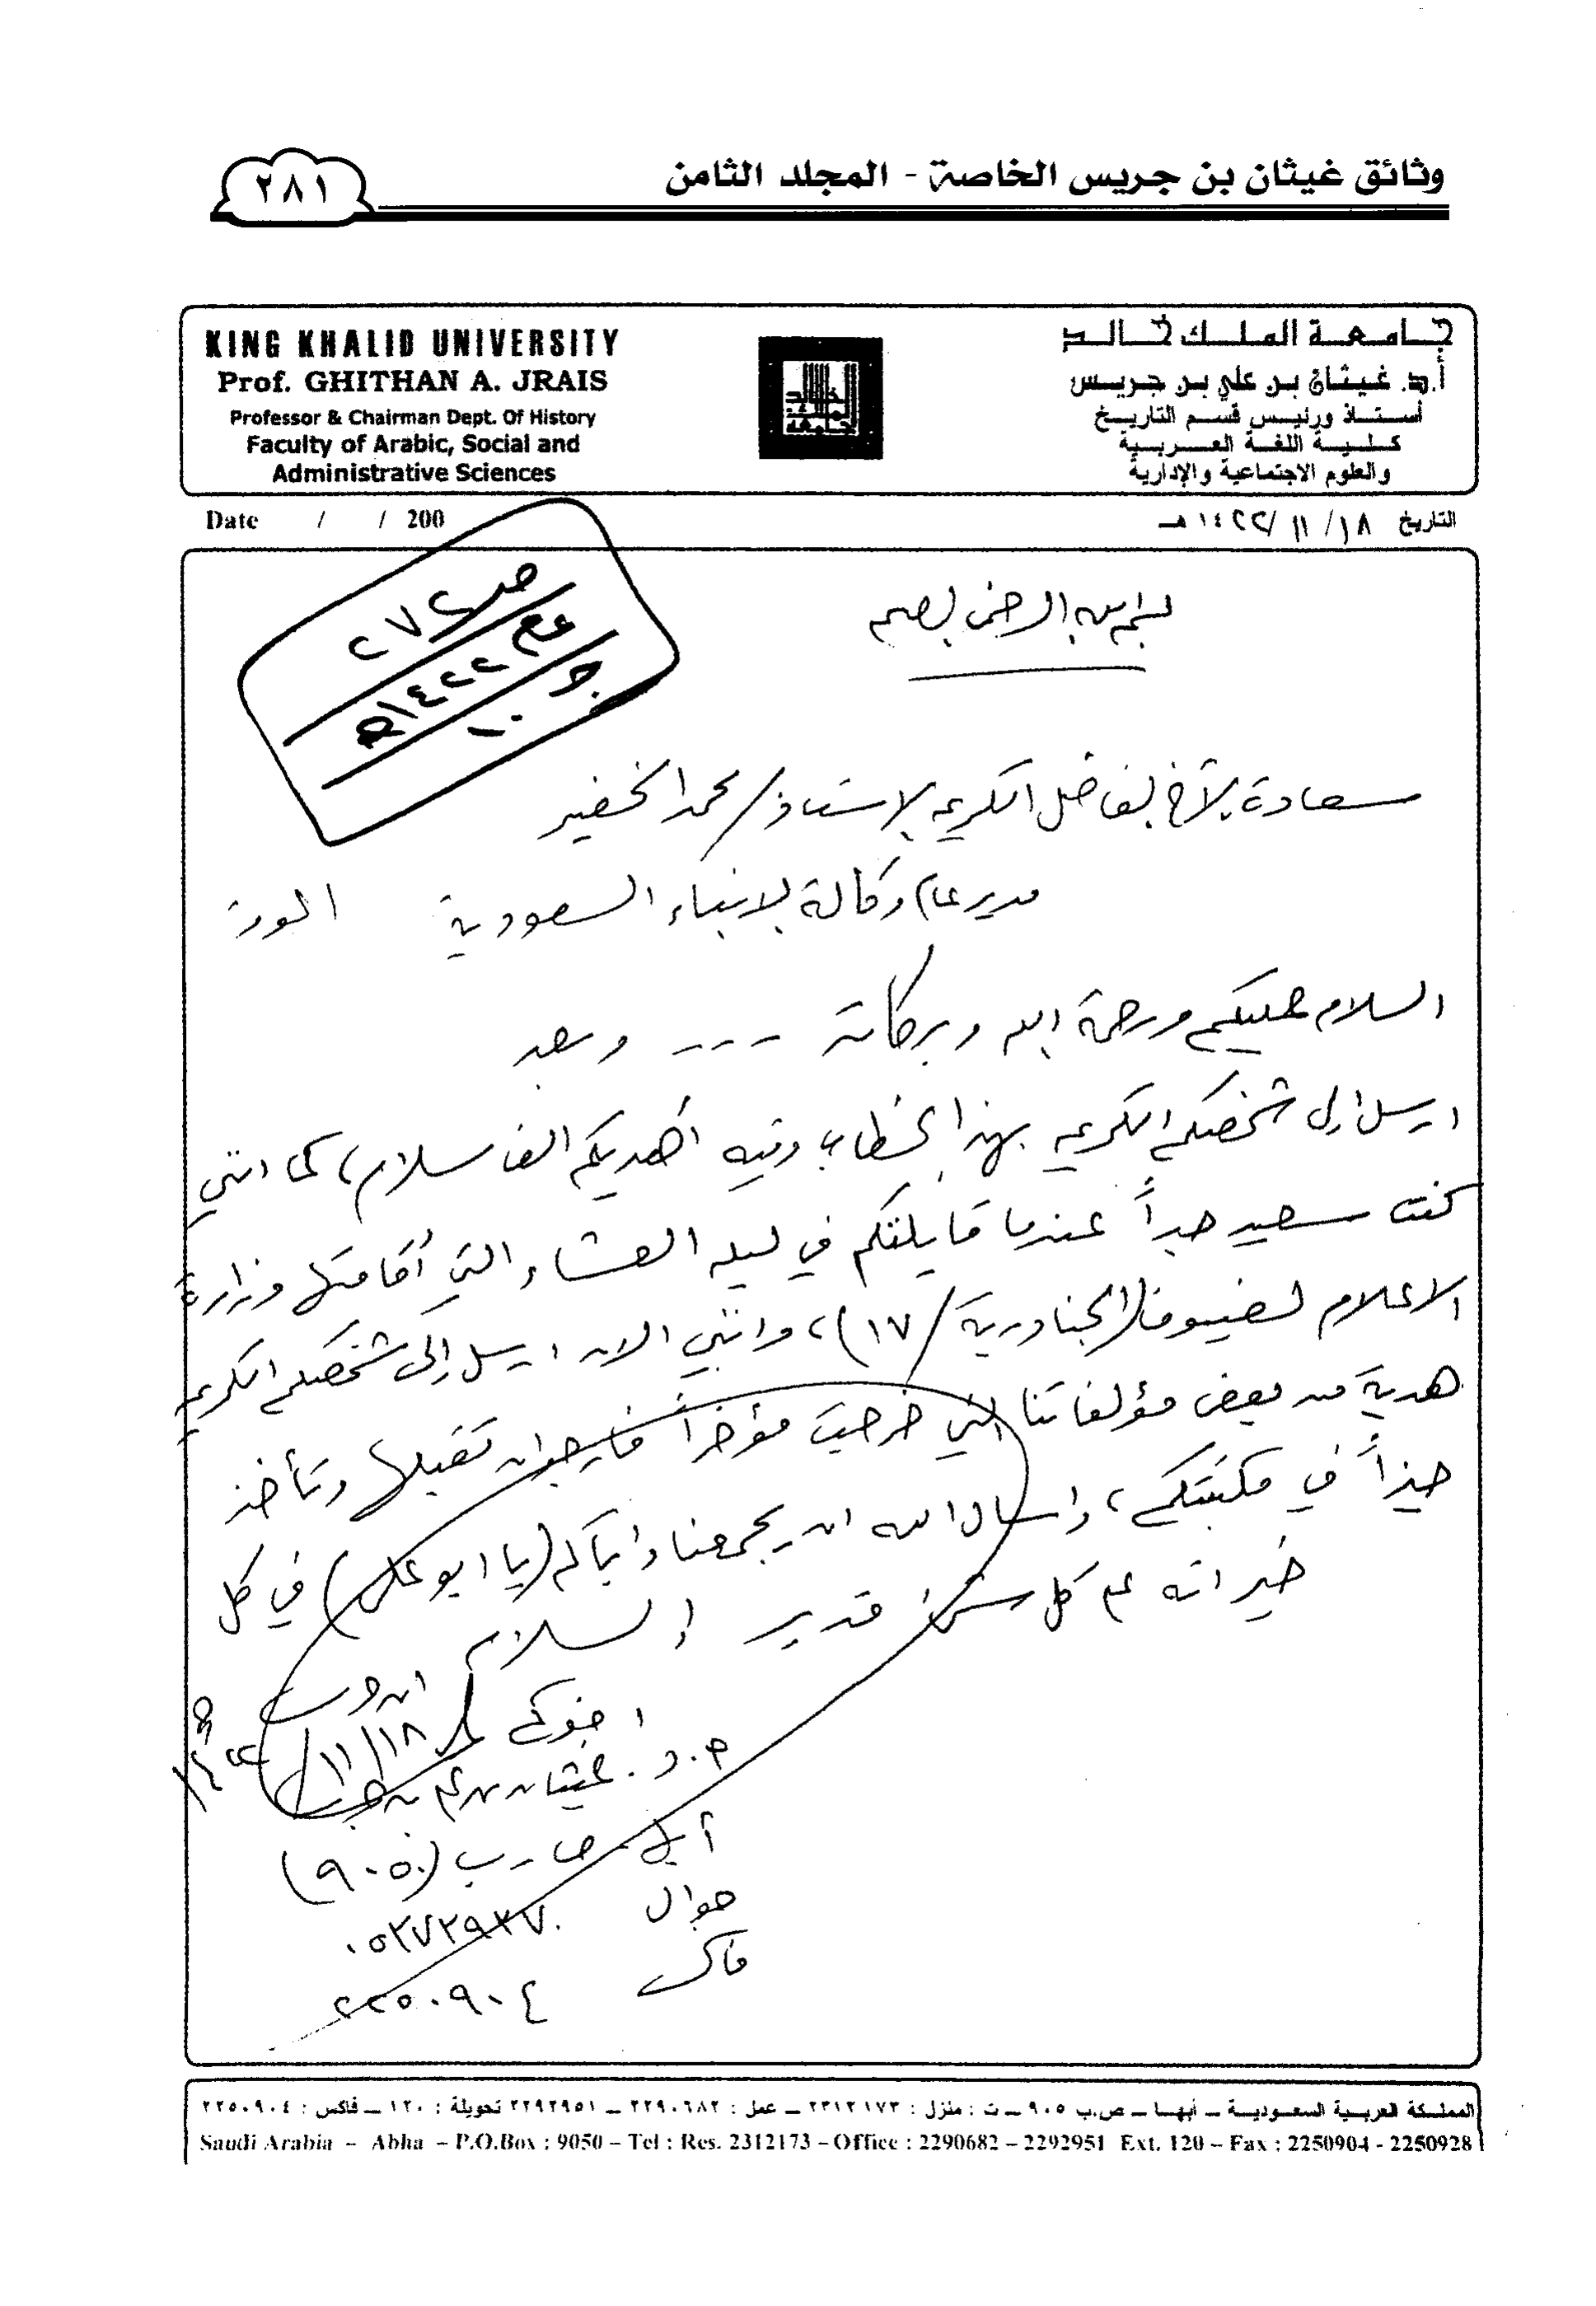 وثائق غيثان بن جريس الخاصة - المجلد الثامن
٢٨١
جامعة الملك خالد
أ.د. غيثان بن علي بن جريس
أستاذ ورئيس قسم التاريخ
كلية اللغة العربية
والعلوم الاجتماعية والإدارية
KING KHALID UNIVERSITY
Prof. GHITHAN A. JRAIS
Professor & Chairman Dept. Of History
Faculty of Arabic, Social and
Administrative Sciences
التاريخ ١٨/ ١١/ ١٤٢٢هـ
Date / / 200
ص ٢٧٢
١٤٢٢هـ
بسم الله الرحمن الرحيم
سعادة الأخ الفاضل الكريم الاستاذ/ محمد الخضير
مدير عام وكالة الانباء السعودية الموقر
السلام عليكم ورحمة الله وبركاته ---- وبعد
ارسل إلى شخصكم الكريم بهذا الخطاب وفيه أهديكم الف سلام، كما انني
كنت سعيد جداً عندما قابلتكم في ليلة العشاء التي أقامتها وزارة
الاعلام لضيوف (الجنادرية/ ١٧)، وانني الان ارسل إلى شخصكم الكريم
هدية من بعض مؤلفاتنا التي خرجت مؤخراً فارجو ان تقبلها وتأخذ
حيزاً في مكتبتكم، واسال الله ان يجمعنا واياكم (يا ابو علي) في كل
خير انه على كل شئ قدير والسلام
اخوكم
أ.د. غيثان بن علي بن جريس
١٨/ ١١/ ١٤٢٢هـ
أبها ص.ب (٩٠٥٠)
جوال ٠٥٢٧٢٩٣٧٠
فاكس ٢٢٥٠٩٠٤
المملكة العربية السعودية – أبهـا – ص.ب ٩٠٥ – ت : منزل : ٢٣١٢١٧٣ – عمل : ٢٢٩٠٦٨٢ – ٢٢٩٢٩٥١ تحويلة : ١٢٠ – فاكس : ٢٢٥٠٩٠٤
Saudi Arabia – Abha – P.O.Box : 9050 – Tel : Res. 2312173 – Office : 2290682 – 2292951 Ext. 120 – Fax : 2250904 - 2250928